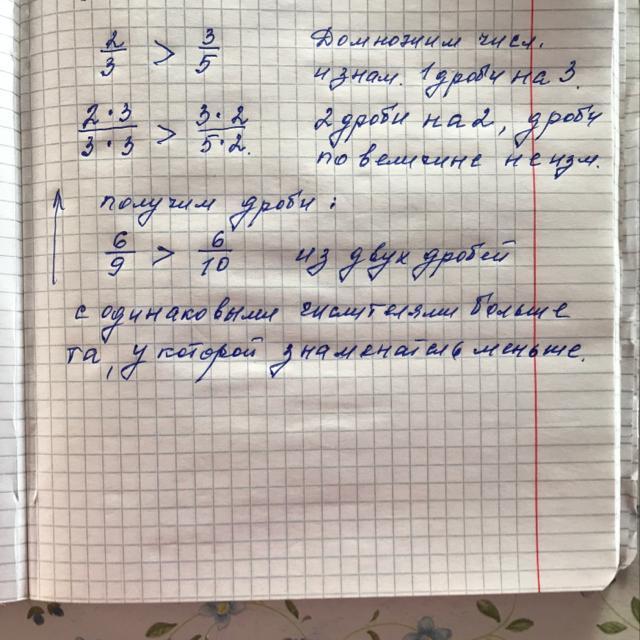 2/3 > 3/5 Домножим числ.
и знам. 1 дроби на 3.
2·3/3·3 > 3·2/5·2. 2 дроби на 2, дроби
по величине не изм.
получим дроби:
6/9 > 6/10 из двух дробей
с одинаковыми числителями больше
та, у которой знаменатель меньше.